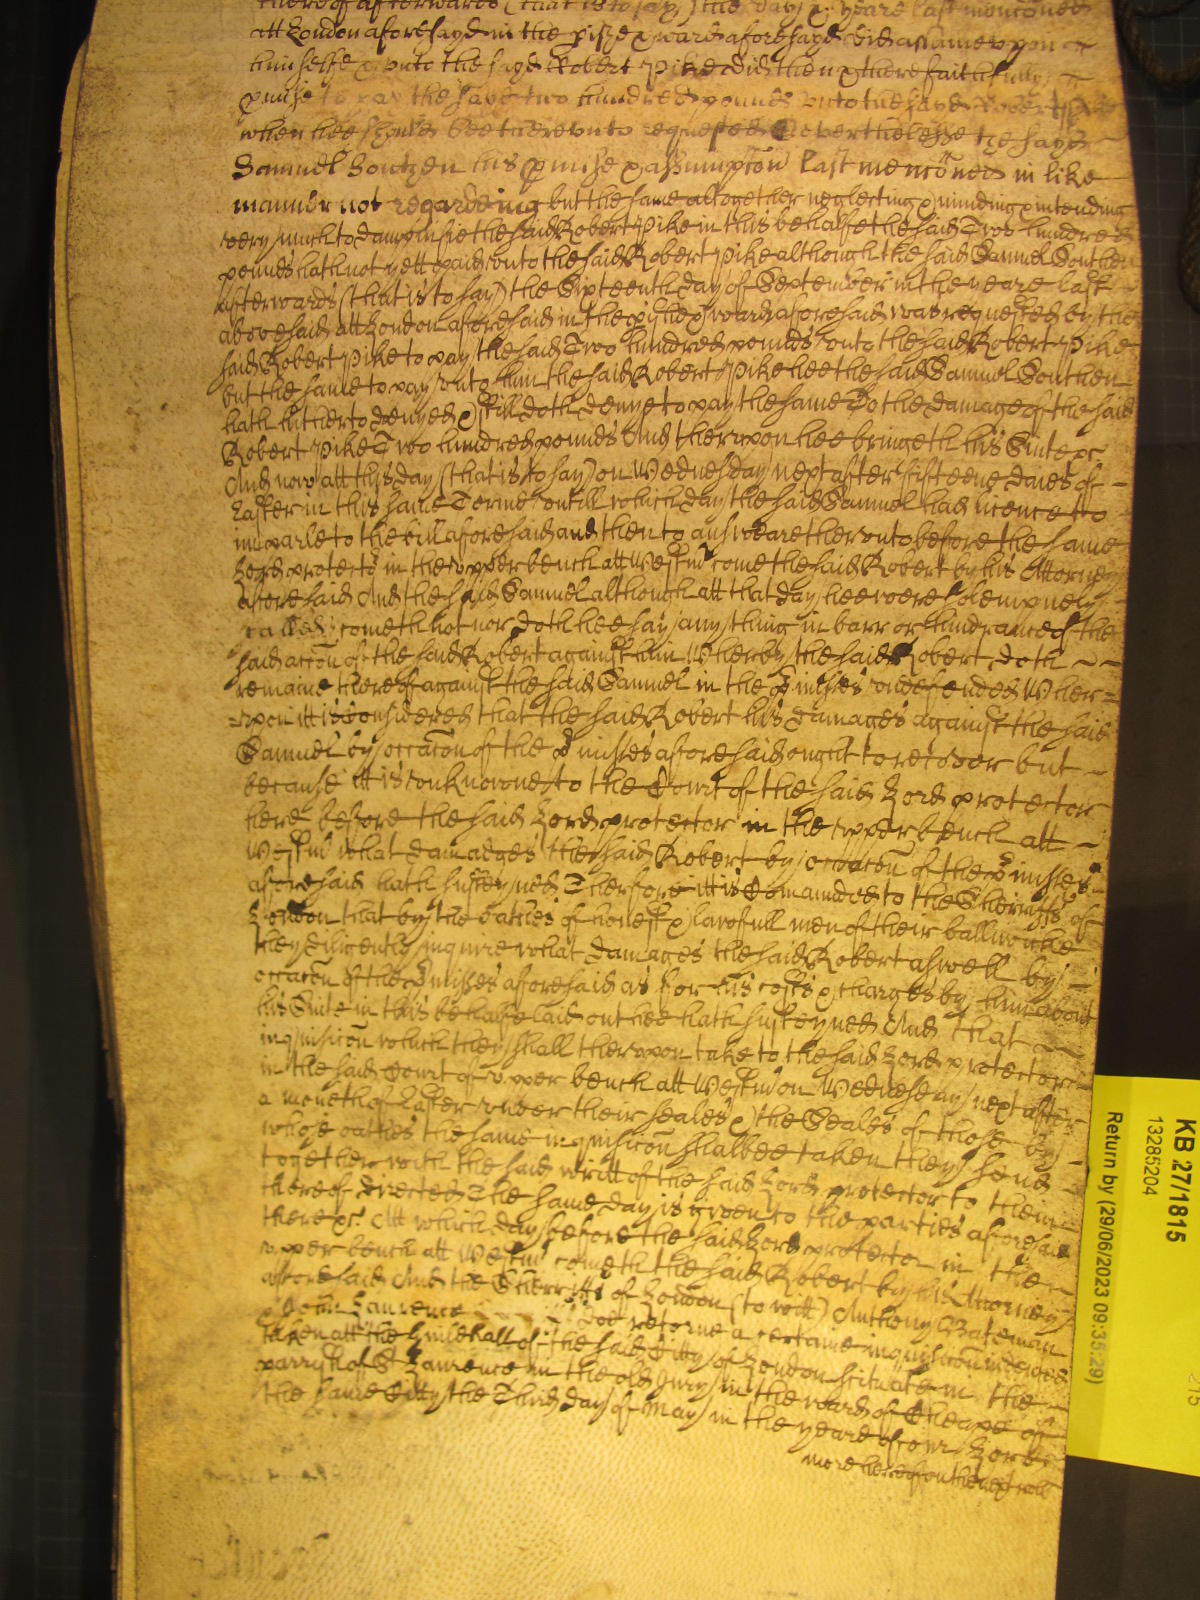 thereof afterwards (that is to say) the day & yeare last mentioned
att London aforesayd in the pishe & ward aforesayd did assume upon
himselfe & unto the sayd Robert Pike did then & there faithfully
pmise to pay the sayd two hundred pounds unto the sayd Robert Pike
when hee should bee thereunto requested Neverthelesse the sayd
Samuel Southen his pmise & assumpcon last menconed in like
manner not regardeing but the same altogether neglecting & minding & intending
very much to dampnifie the said Robert Pike in this behalfe the said Two hundred
pounds hath not yett paid unto the said Robert Pike although the said Samuel Southen
afterwards (that is to say) the Sixteenth day of September in the yeare last
abovesaid att London aforesaid in the pishe & ward aforesaid was requested by the
said Robert Pike to pay the said Two hundred pounds unto the said Robert Pike
but the same to pay unto him the said Robert Pike hee the said Samuel Southen
hath hitherto denyed & still doth denye to pay the same To the damage of the said
Robert Pike Two hundred pounds And therupon hee bringeth his Suite &c
And now att this day (that is to say) on Wednesday next after fifteene daies of
Easter in this same Terme untill which day the said Samuel had licence to
imparle to the bill aforesaid and then to answeare therunto before the same
Lord protector in the upper bench att Westm come the said Robert by his Attorney
aforesaid And the said Samuel although att that day hee were solempnely
called cometh not nor doth hee say any thing in barr or hindrance of the
said accon of the said Robert against him Wherby the said Robert doth
remaine thereof against the said Samuel in the pmisses undefended Wher=
=upon itt is Considered that the said Robert his damages against the said
Samuel by occacon of the pmisses aforesaid ought to recover but
because itt is unknowne to the Court of the said Lord protector
here before the said Lord protector in the upper bench att
Westm what damadges the said Robert by occacon of the pmisses
aforesaid hath susteyned Therfore itt is Comanded to the Sheriffs of
London that by the oathes of honest & lawfull men of their balliwicke
they diligently inquire what damages the said Robert aswell by
occacon of the pmisses aforesaid as for his costs & charges by him about
his Suite in this behalfe laid out hee hath susteyned And that
inquisicon which they shall therupon take to the said Lord protector
in the said Court of upper bench att Westm on Wednesday next after
a moneth of Easter under their seales & the Seales of those by
whose oathes the same inquisicon shalbee taken they send
together with the said writt of the said Lord protector to them
thereof directed The same day is given to the parties aforesaid
there &c Att which day before the said Lord protector in the
upper bench att Westm cometh the said Robert by his Attorney
aforesaid And the Sherriffs of London (to witt) Anthony Bateman
& John Lawrence doe retorne a certaine inquisicon indented
taken att the Guildhall of the said Citty of London scituate in the
parrish of St Laurence in the old Jury in the ward of Cheape of
the same Citty the Third day of May in the yeare of our Lord
more hereof on the next roll
KB 27/1815
13285204
Return by (29/06/2023 09:35:29)
215